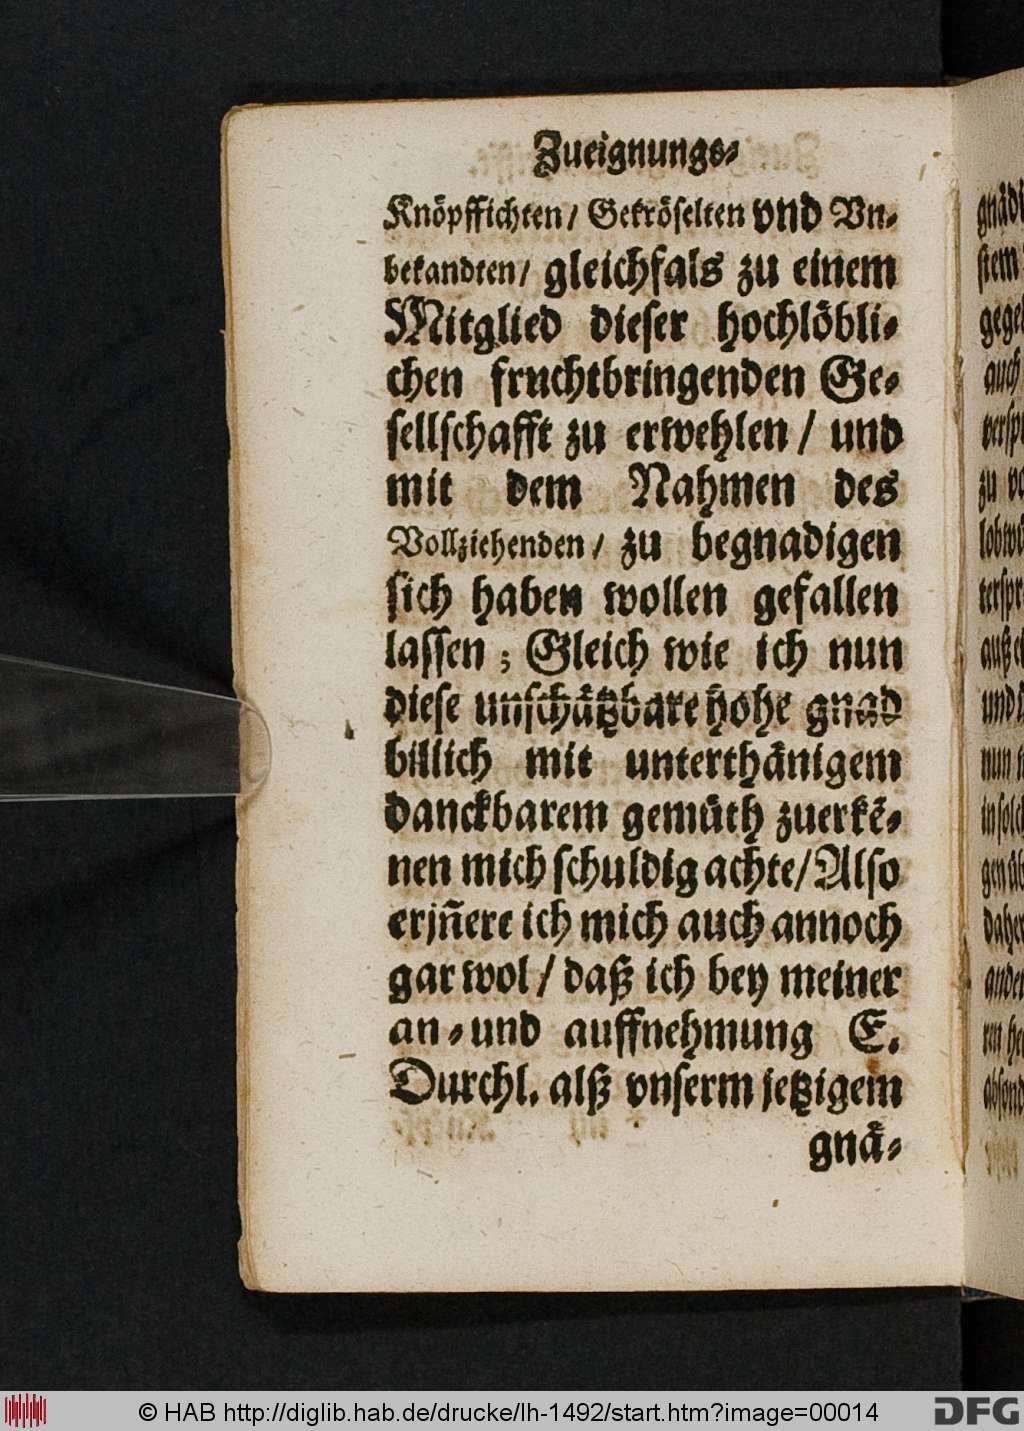 Zueignungs-
Knöpffichten/ Gekröselten vnd Vn-
bekandten/ gleichfals zu einem
Mitglied dieser hochlöbli-
chen fruchtbringenden Ge-
sellschafft zu erwehlen / und
mit dem Nahmen des
Vollziehenden/ zu begnadigen
sich haben wollen gefallen
lassen; Gleich wie ich nun
diese unschätzbare hohe gnad
billich mit unterthänigem
danckbarem gemüth zuerkē-
nen mich schuldig achte/ Also
erjñere ich mich auch annoch
gar wol / daß ich bey meiner
an- und auffnehmung E.
Durchl. alß vnserm jetzigem
gnä-
gnädi
stem
gegen
auch
verspr
zu vo
lobwü
terspr
auß ei
und
nun
in solch
gen üb
daher
ander
absond
© HAB http://diglib.hab.de/drucke/lh-1492/start.htm?image=00014
DFG